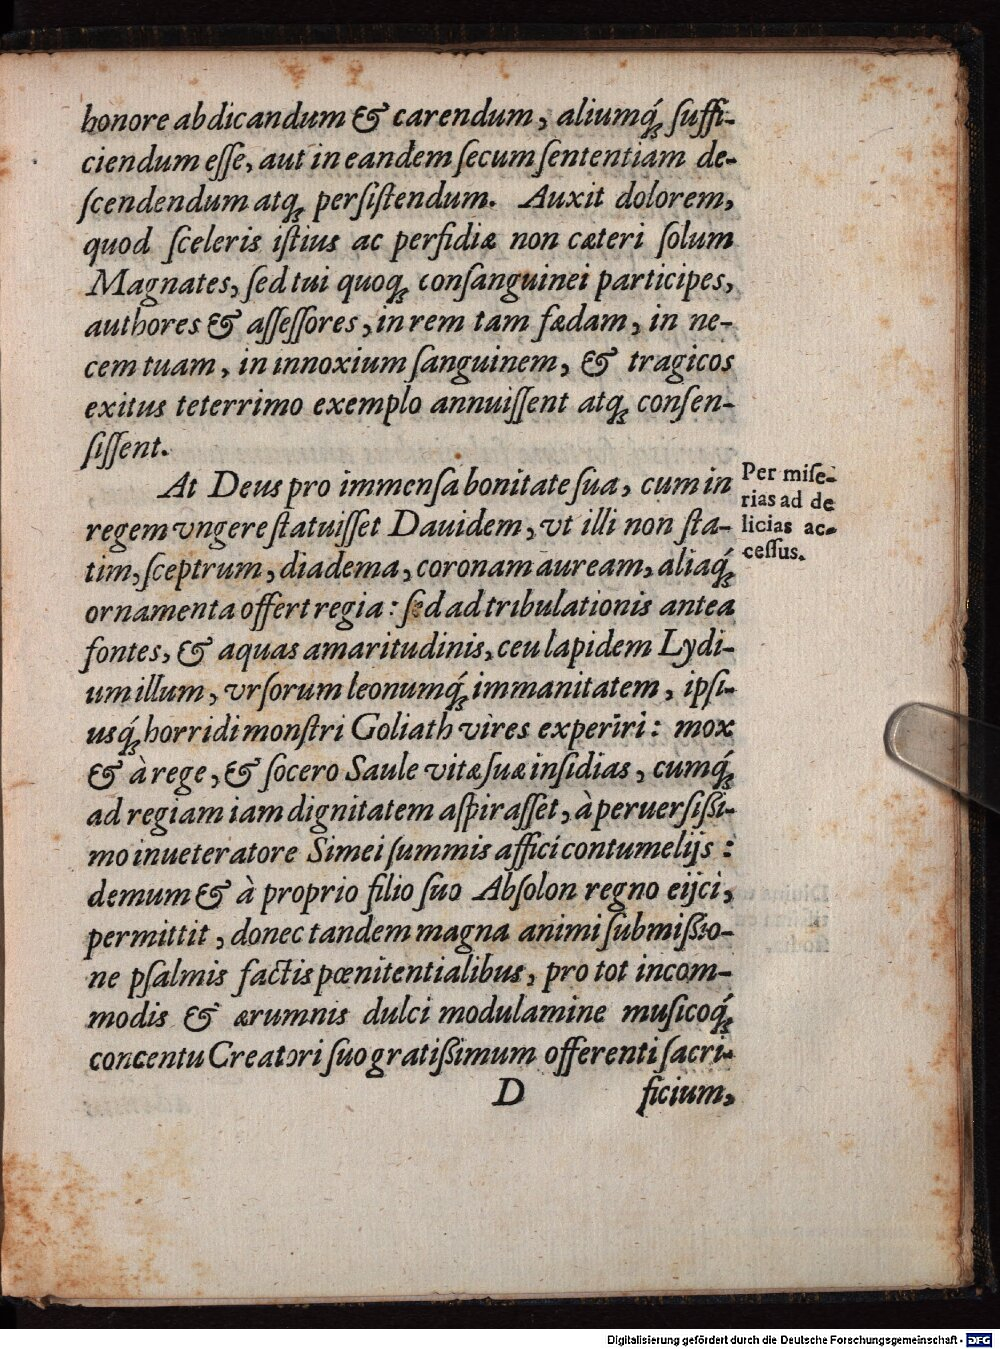 honore abdicandum & carendum, aliumq́; ſuffi-
ciendum eſſe, aut in eandem ſecum ſententiam de-
ſcendendum atq; perſiſtendum. Auxit dolorem,
quod ſceleris iſtius ac perfidiæ non cæteri ſolum
Magnates, ſed tui quoq; conſanguinei participes,
authores & aſſeſſores, in rem tam fædam, in ne-
cem tuam, in innoxium ſanguinem, & tragicos
exitus teterrimo exemplo annuiſſent atq; conſen-
ſiſſent.
At Deus pro immenſa bonitate ſua, cum in
regem vngere ſtatuiſſet Dauidem, vt illi non ſta-
tim, ſceptrum, diadema, coronam auream, aliaq́;
ornamenta offert regia: ſed ad tribulationis antea
fontes, & aquas amaritudinis, ceu lapidem Lydi-
um illum, vrſorum leonumq́; immanitatem, ipſi-
usq́; horridi monſtri Goliath vires experiri: mox
& à rege, & ſocero Saule vitæ ſuæ inſidias, cumq́;
ad regiam iam dignitatem aſpiraſſet, à peruerſiſsi-
mo inueteratore Simei ſummis affici contumelijs:
demum & à proprio filio ſuo Abſolon regno eijci,
permittit, donec tandem magna animi ſubmiſsio-
ne pſalmis factis pœnitentialibus, pro tot incom-
modis & ærumnis dulci modulamine muſicoq́;
concentu Creatori ſuo gratiſsimum offerenti ſacri-
D ficium,
Per miſe-
rias ad de
licias ac-
ceſſus.
Digitalisierung gefördert durch die Deutsche Forschungsgemeinschaft - DFG